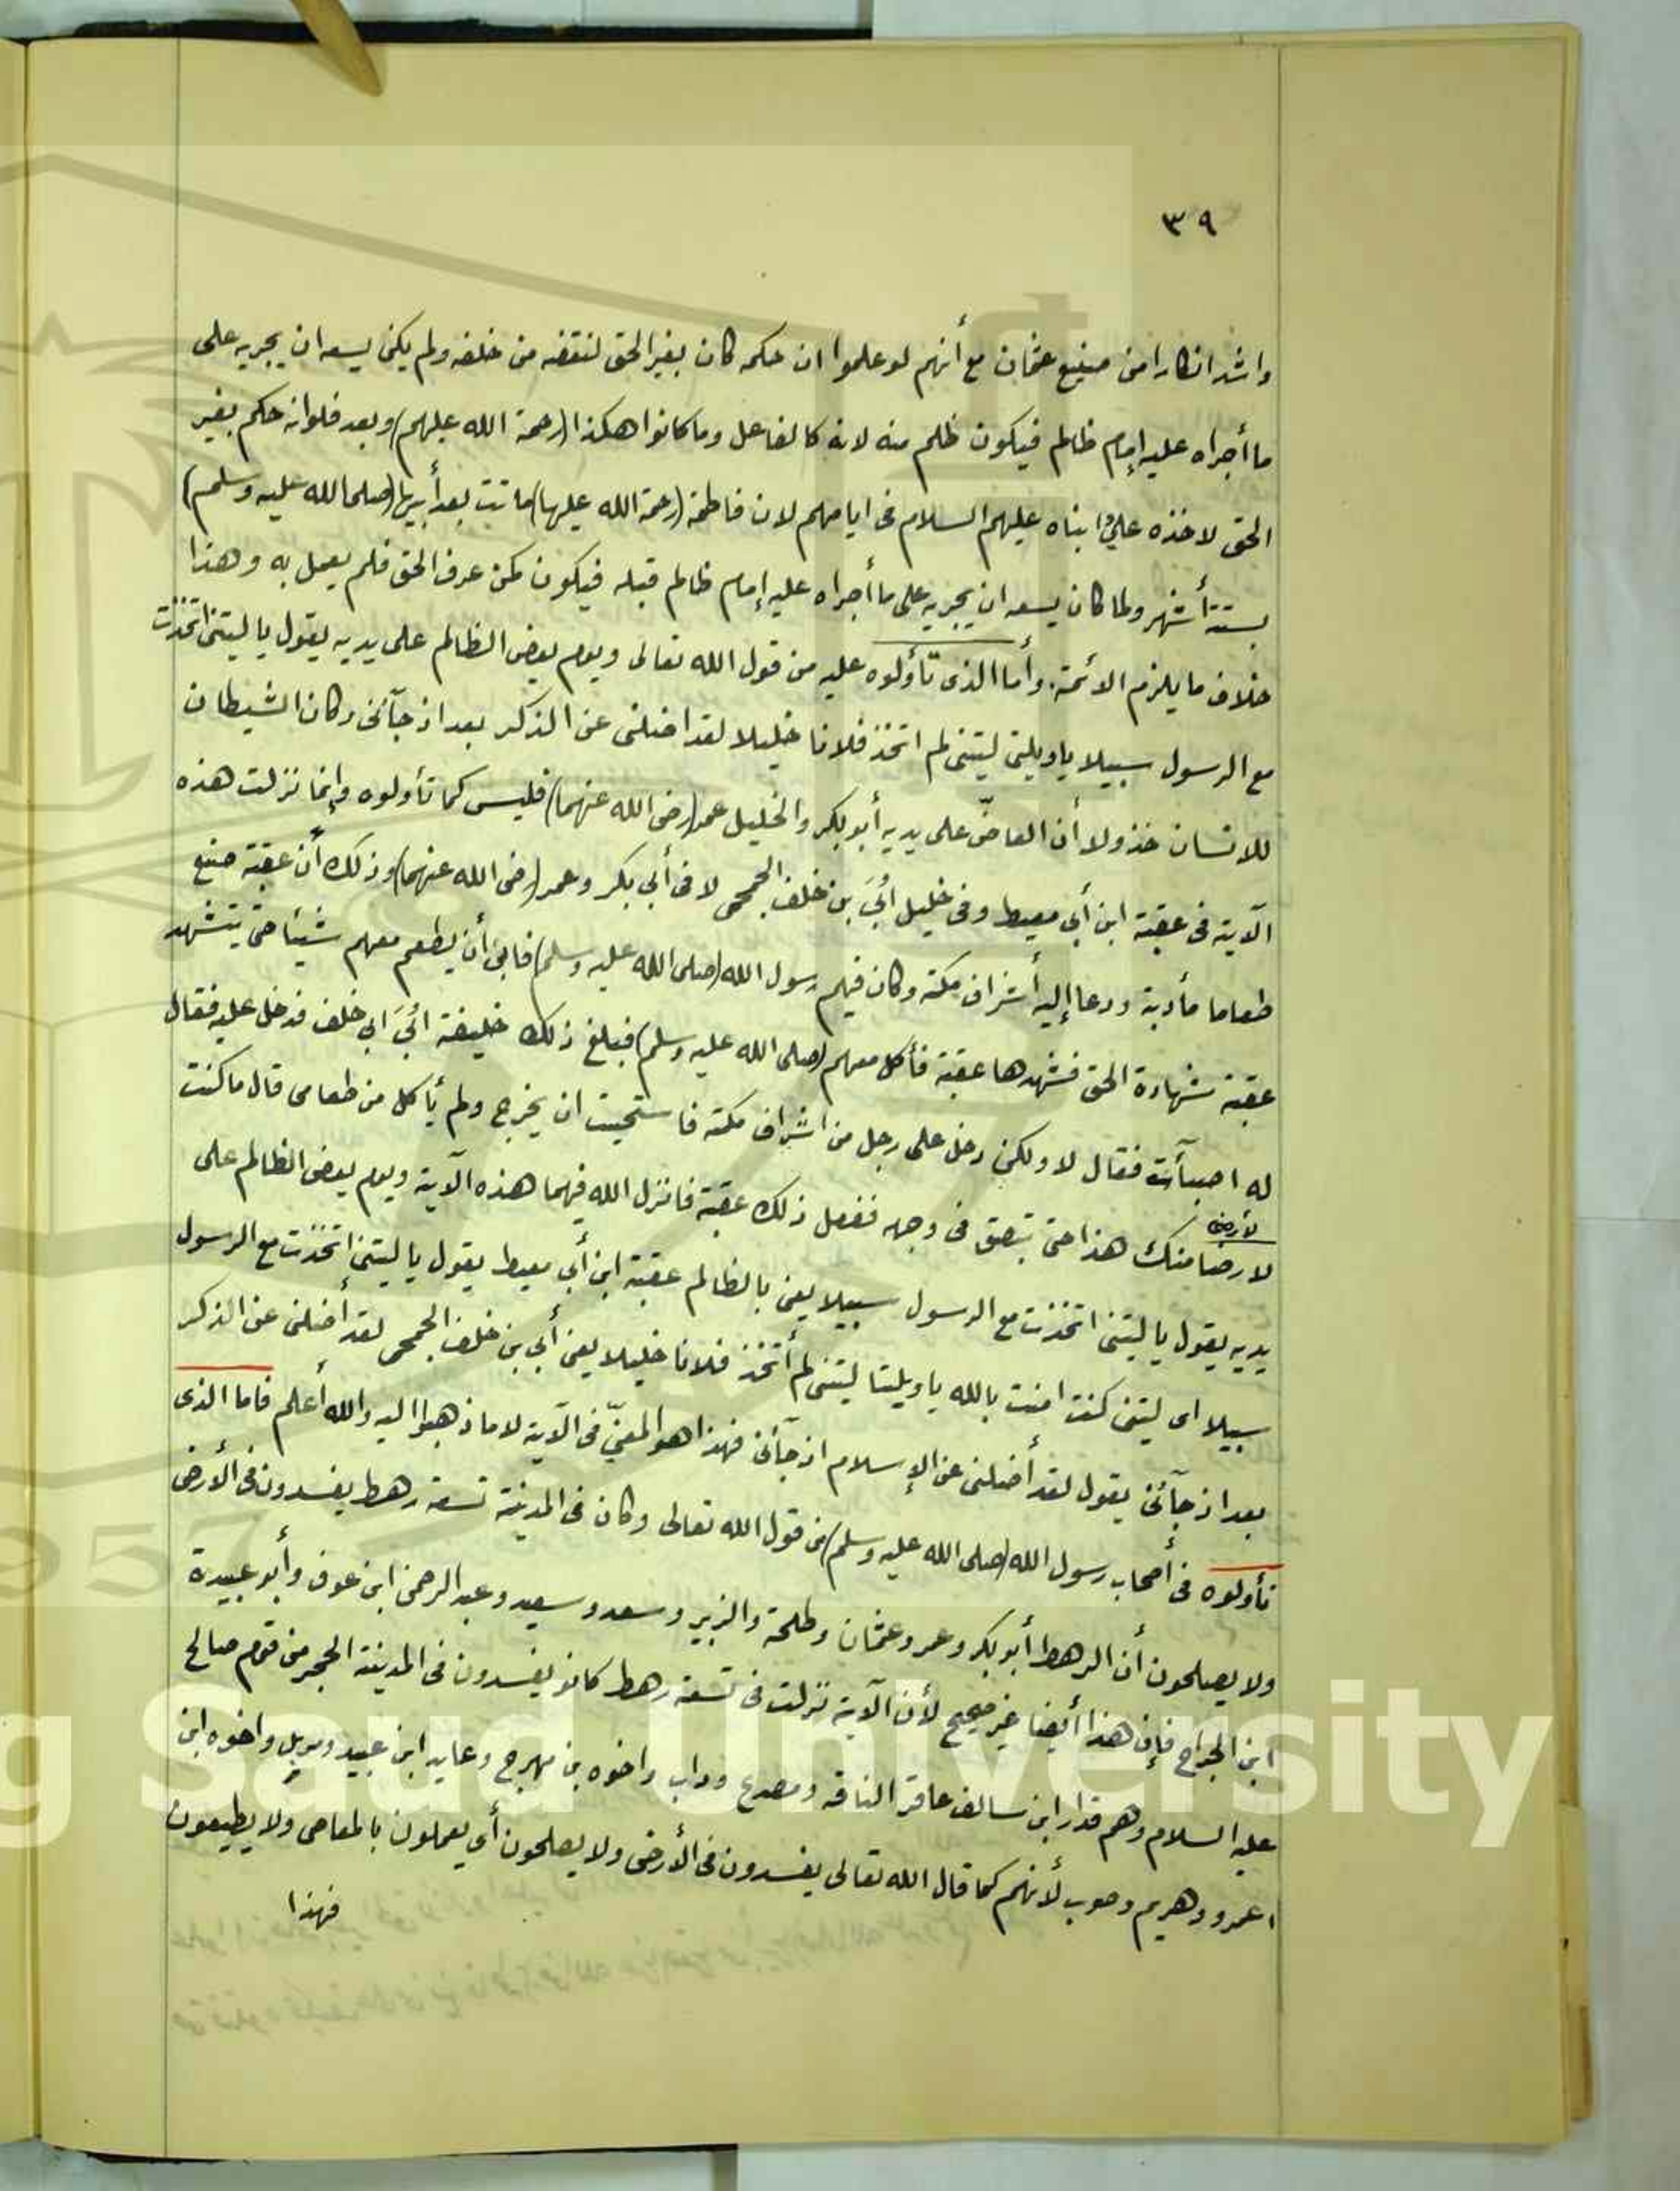 ٣٩
واشد انكارا من صنيع عثمان مع أنهم لو علموا ان حكمه كان بغير الحق لنتقضه من خلفه ولم يكن يسعه ان يجريه على
ما أجراه عليه إمام ظالم فيكون ظلم منه لانه كالفاعل وما كانوا هكذا (رحمة الله عليهم) وبعد فلو انه حكم بغير
الحق لاخذه علي وابناه عليهم السلام فى ايامهم لان فاطمة (رحمة الله عليها) ماتت بعد أبيها (صلى الله عليه وسلم)
بستة أشهر ولما كان يسعه ان يجريه على ما أجراه عليه إمام ظالم قبله فيكون كمن عرف الحق فلم يعمل به وهذا
خلاف ما يلزم الائمة. وأما الذى تأولوه عليه من قول الله تعالى ويوم يعض الظالم على يديه يقول يا ليتنى اتخذت
مع الرسول سبيلا ياويلتى ليتنى لم اتخذ فلانا خليلا لقد اضلنى عن الذكر بعد اذ جآنى وكان الشيطان
للانسان خذولا أن العاضّ على يديه أبو بكر والخليل عمر (رضى الله عنهما) فليس كما تأولوه وإنما نزلت هذه
الآية فى عقبة ابن أبي معيط وفى خليل أبيّ بن خلف الجمحى لا فى أبي بكر وعمر (رضى الله عنهما) وذلك أن عقبة صنع
طعاما مأدبة ودعا إليه أشراف مكة وكان فيهم رسول الله (صلى الله عليه وسلم) فابى أن يطعم معهم شيئا حتى يتشهد
عقبة شهادة الحق فشهدها عقبة فأكل معهم (صلى الله عليه وسلم) فبلغ ذلك خليفة أبيّ ابى خلف فدخل عليه فقال
له اصبأت فقال لا ولكن دخل على رجل من اشراف مكة فاستحيت ان يخرج ولم يأكل من طعامى قال ما كنت
لأرضى
لارضا منك هذا حتى تبصق فى وجهه ففعل ذلك عقبة فانزل الله فيهما هذه الآية ويوم يعض الظالم على
يديه يقول يا ليتنى اتخذت مع الرسول سبيلا يعنى بالظالم عقبة ابن أبي معيط يقول يا ليتنى اتخذت مع الرسول
سبيلا اى ليتنى كنت امنت بالله ياويلتا ليتنى لم أتخذ فلانا خليلا يعنى أبي بن خلف الجمحى لقد أضلنى عن الذكر
بعد اذ جآئنى يقول لقد أضلنى عن الإسلام اذ جآئنى فهذا هو المعنيّ فى الآية لا ما ذهبوا اليه والله أعلم فاما الذى
تأولوه فى أصحاب رسول الله (صلى الله عليه وسلم) من قول الله تعالى وكان فى المدينة تسعة رهط يفسدون فى الأرض
ولا يصلحون أن الرهط أبو بكر وعمر وعثمان وطلحة والزبير وسعد وسعيد وعبد الرحمن ابن عوف وأبو عبيدة
ابن الجراح فإن هذا أيضا غير صحيح لأن الآية نزلت فى تسعة رهط كانو يفسدون فى المدينة الحجر من قوم صالح
عليه السلام وهم قدار ابن سالف عاقر الناقه ومصدع وداب واخوه بن مهرج وعايد ابن عبيد وموبل واخوه ابن
اعمرو وهريم وصوب لأنهم كما قال الله تعالى يفسدون فى الأرض ولا يصلحون أي يعملون بالمعاصى ولا يطيعون
فهذا
g Saud University
957